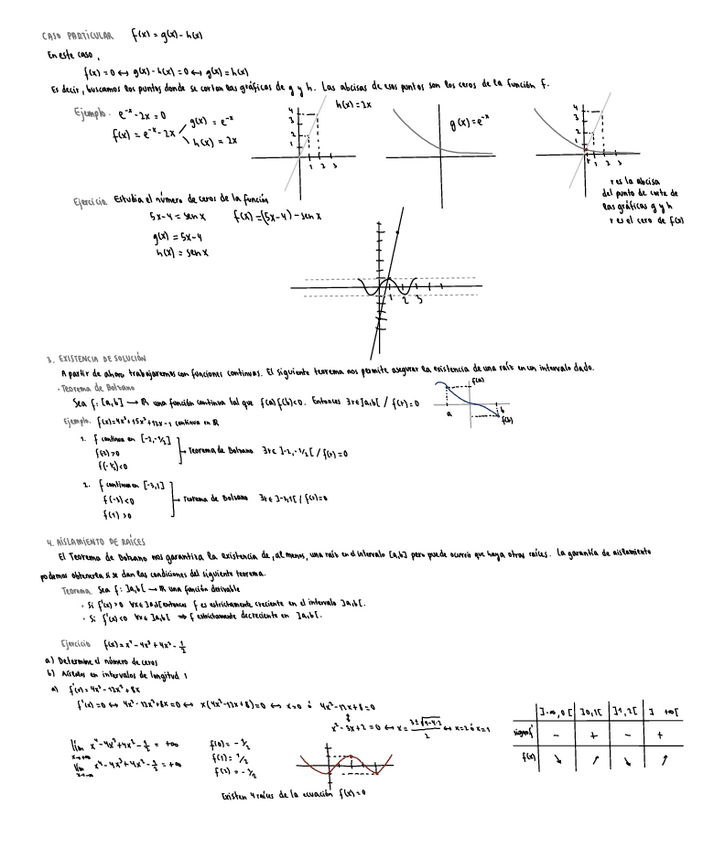 CASO PARTICULAR f(x) = g(x) - h(x)
En este caso,
f(x) = 0 ↔ g(x) - h(x) = 0 ↔ g(x) = h(x)
Es decir, buscamos los puntos donde se cortan las gráficas de g y h. Las abcisas de esos puntos son los ceros de la función f.
Ejemplo. e^-x - 2x = 0
f(x) = e^-x - 2x
g(x) = e^-x
h(x) = 2x
h(x) = 2x
g(x) = e^-x
r es la abcisa
del punto de corte de
las gráficas g y h
r es el cero de f(x)
Ejercicio. Estudia el número de ceros de la función
5x - 4 = sen x f(x) = (5x - 4) - sen x
g(x) = 5x - 4
h(x) = sen x
3. EXISTENCIA DE SOLUCIÓN
A partir de ahora trabajaremos con funciones continuas. El siguiente teorema nos permite asegurar la existencia de una raíz en un intervalo dado.
· Teorema de Bolzano
Sea f: [a,b] → R una función continua tal que f(a) f(b) < 0. Entonces ∃ r ∈ ]a,b[ / f(r) = 0
f(a)
a
b
f(b)
Ejemplo.
continua en R
1. f continua en [-2, -1/2]
Teorema de Bolzano ∃ r ∈ ]-2, -1/2[ / f(r) = 0
f(-1/2) < 0
2. f continua en
Teorema de Bolzano
4. AISLAMIENTO DE RAÍCES
El Teorema de Bolzano nos garantiza la existencia de, al menos, una raíz en el intervalo [a,b] pero puede ocurrir que haya otras raíces. La garantía de aislamiento
podemos obtenerla si se dan las condiciones del siguiente teorema.
Teorema. Sea f: ]a,b[ → R una función derivable
· Si f'(x) > 0 ∀x ∈ ]a,b[ entonces f es estrictamente creciente en el intervalo ]a,b[.
· Si f'(x) < 0 ∀x ∈ ]a,b[ ⇒ f estrictamente decreciente en ]a,b[.
Ejercicio. f(x) = x⁴ - 4x³ + 4x² - 1/2
a) Determina el número de ceros
b) en intervalos de longitud 1
a) f'(x) = 4x³ - 12x² + 8x
f'(x) = 0 ↔ 4x³ - 12x² + 8x = 0 ↔ x(4x² - 12x + 8) = 0 ↔ x = 0 ó 4x² - 12x + 8 = 0
x² - 3x + 2 = 0 ↔ x = (3 ± √(9-4·2))/2 ↔ x = 2 ó x = 1
lim x⁴ - 4x³ + 4x² - 1/2 = +∞
lim x⁴ - 4x³ + 4x² - 1/2 = +∞
f(0) = -1/2
f(1) = 1/2
f(2) = -1/2
]-∞,0[ ]0,1[ ]1,2[ ] +∞[
signo f' - + - +
f(x) ↘ ↗ ↘ ↗
Existen 4 raíces de la ecuación f(x) = 0